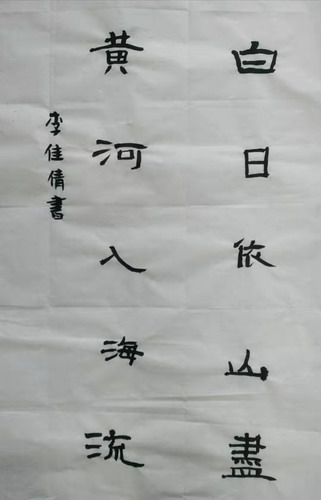 白日依山盡
黄河入海流
李佳倩書